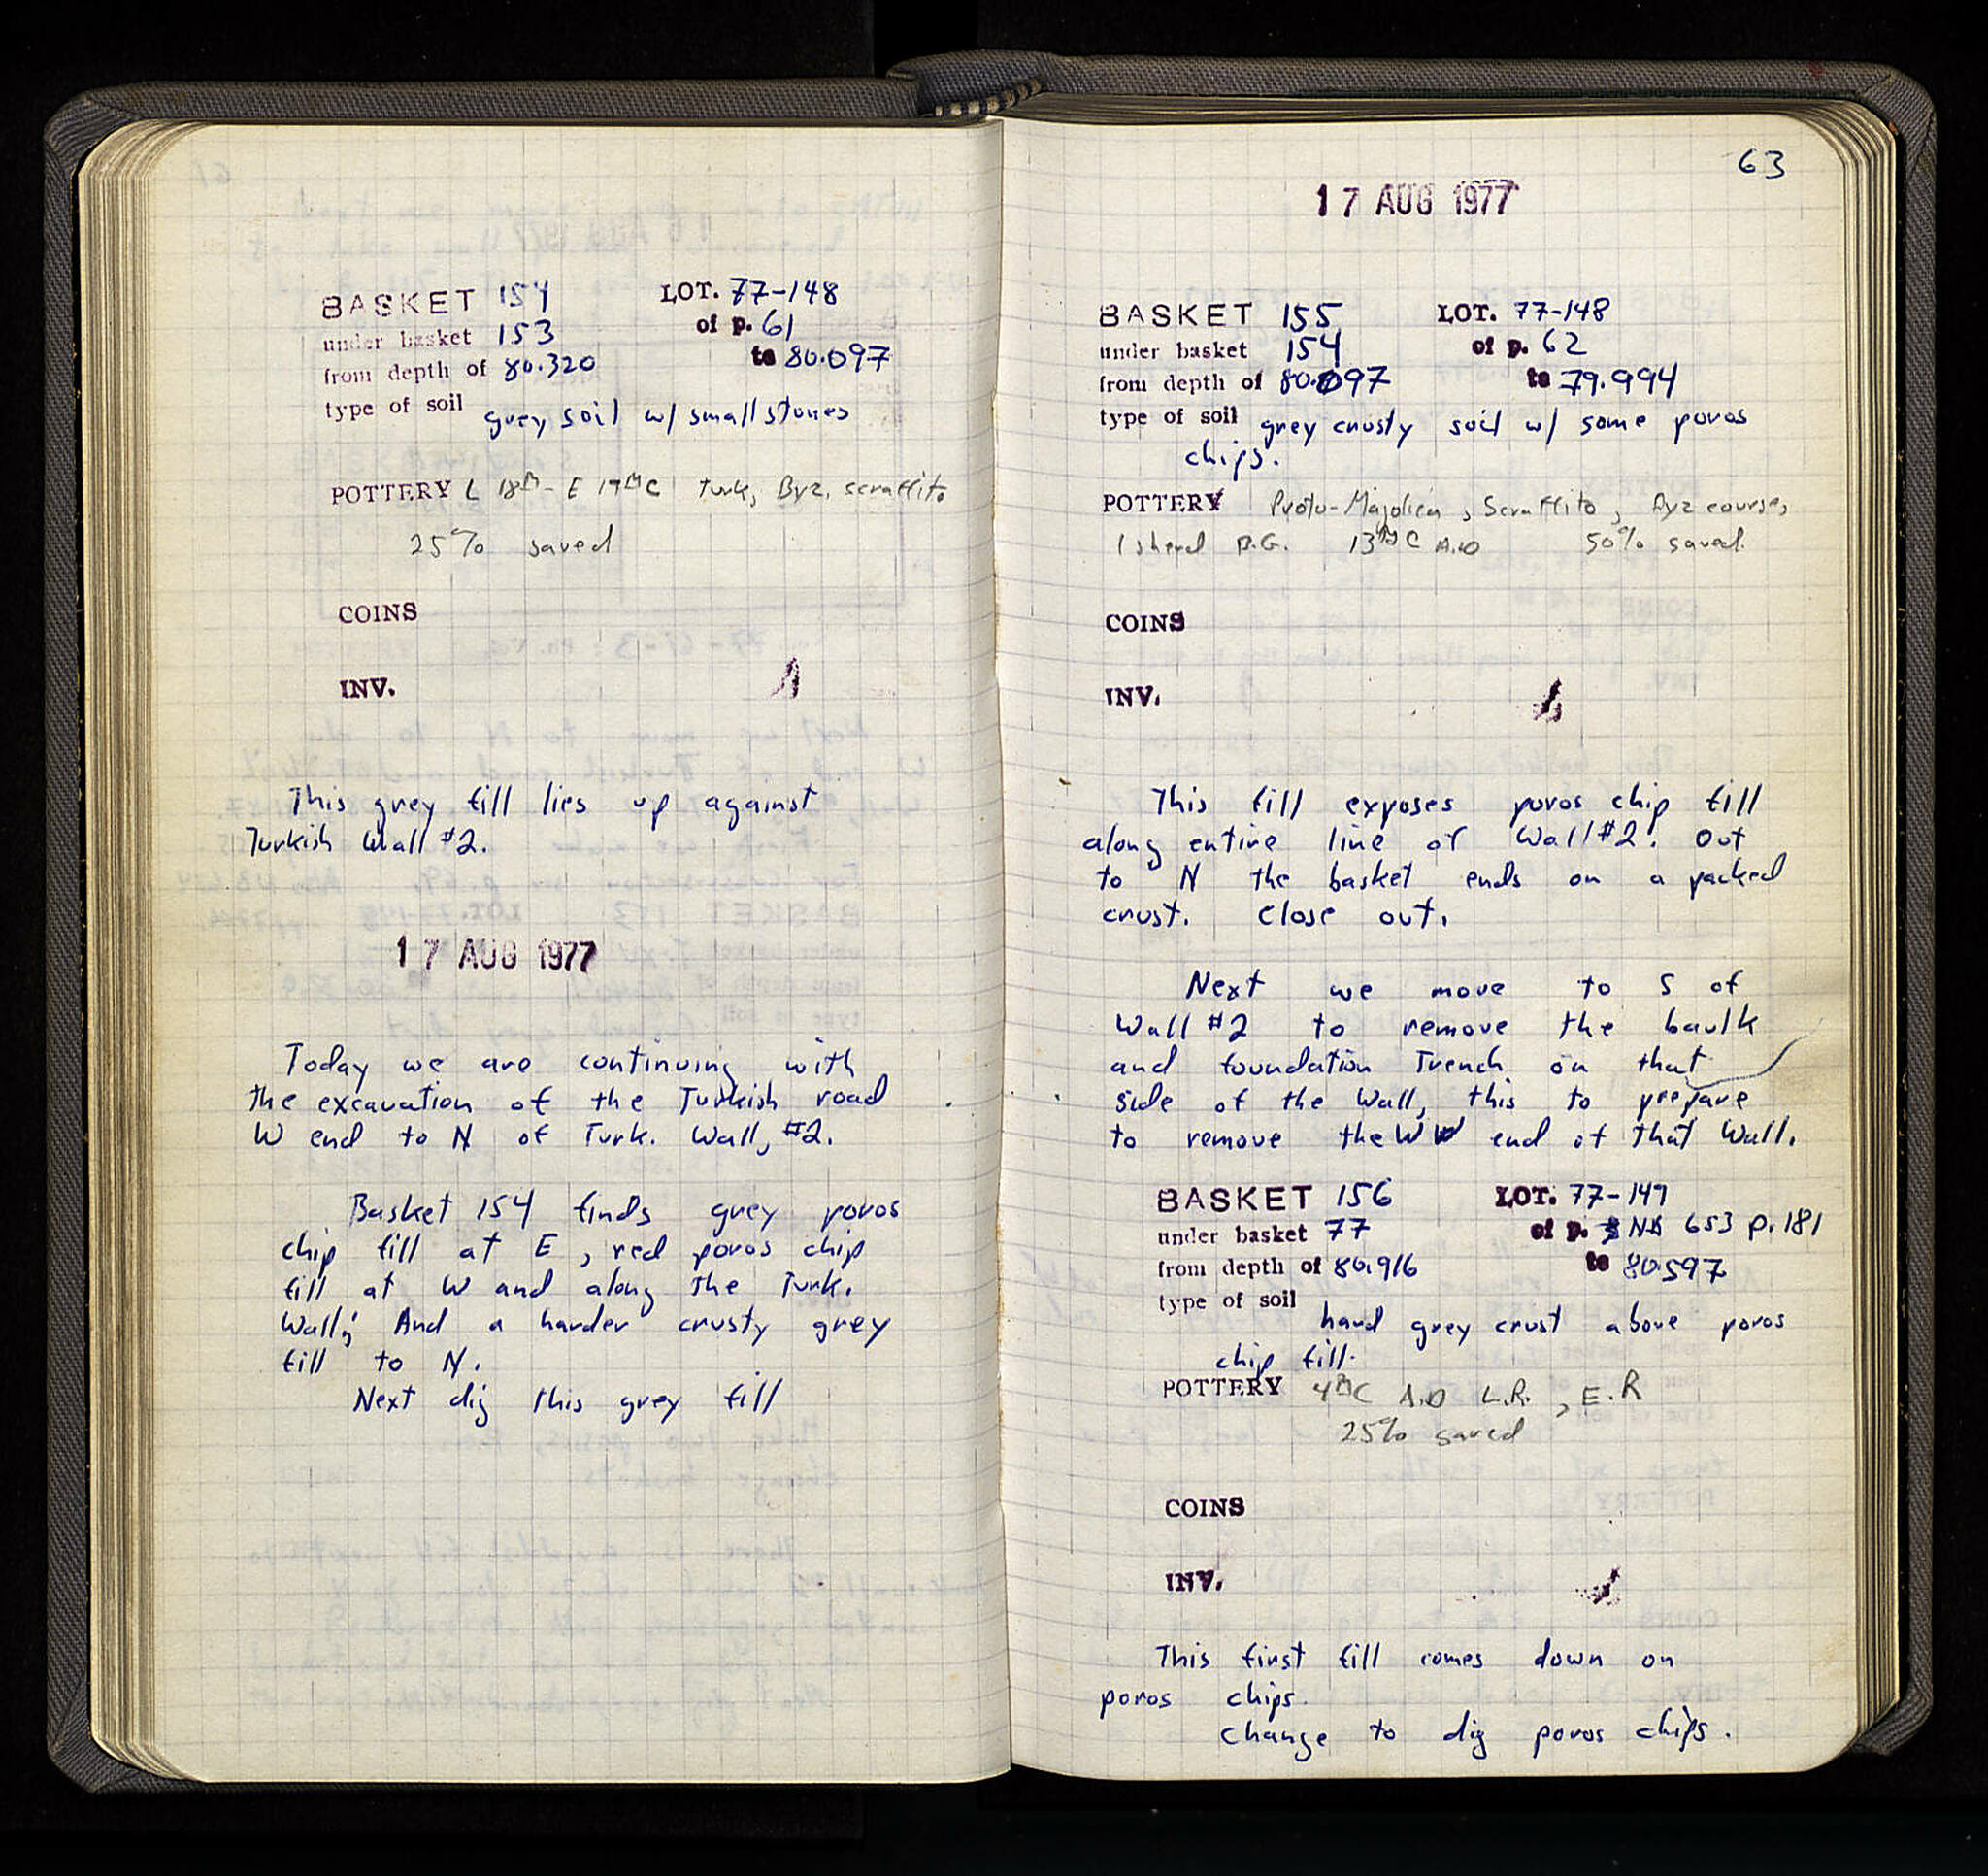 BASKET 154 LOT. 77-148
under basket 153 of p. 61
from depth of 80.320 to 80.097
type of soil grey soil w/ small stones
POTTERY L 18th - E 19th C Turk, Byz, scraffito
25% saved
COINS
INV.
This grey fill lies up against
Turkish Wall #2.
17 AUG 1977
Today we are continuing with
the excavation of the Turkish road
W end to N of Turk. Wall, #2.
Basket 154 finds grey poros
chip fill at E, red poros chip
fill at W and along the Turk.
Wall; And a harder crusty grey
fill to N.
Next dig this grey fill
63
17 AUG 1977
BASKET 155 LOT. 77-148
under basket 154 of p. 62
from depth of 80.097 to 79.994
type of soil grey crusty soil w/ some poros
chips.
POTTERY Proto-Majolica, Scraffito, Byz course,
1 sherd B.G. 13th C A.D 50% saved.
COINS
INV.
This fill exposes poros chip fill
along entire line of Wall #2. Out
to N the basket ends on a packed
crust. Close out.
Next we move to S of
Wall #2 to remove the baulk
and foundation Trench on that
side of the Wall, this to prepare
to remove the W end of that Wall.
BASKET 156 LOT. 77-149
under basket 77 of p. NB 653 p. 181
from depth of 80.916 to 80.597
type of soil hard grey crust above poros
chip fill.
POTTERY 4th C A.D L.R., E.R
25% saved
COINS
INV.
This first fill comes down on
poros chips.
Change to dig poros chips.